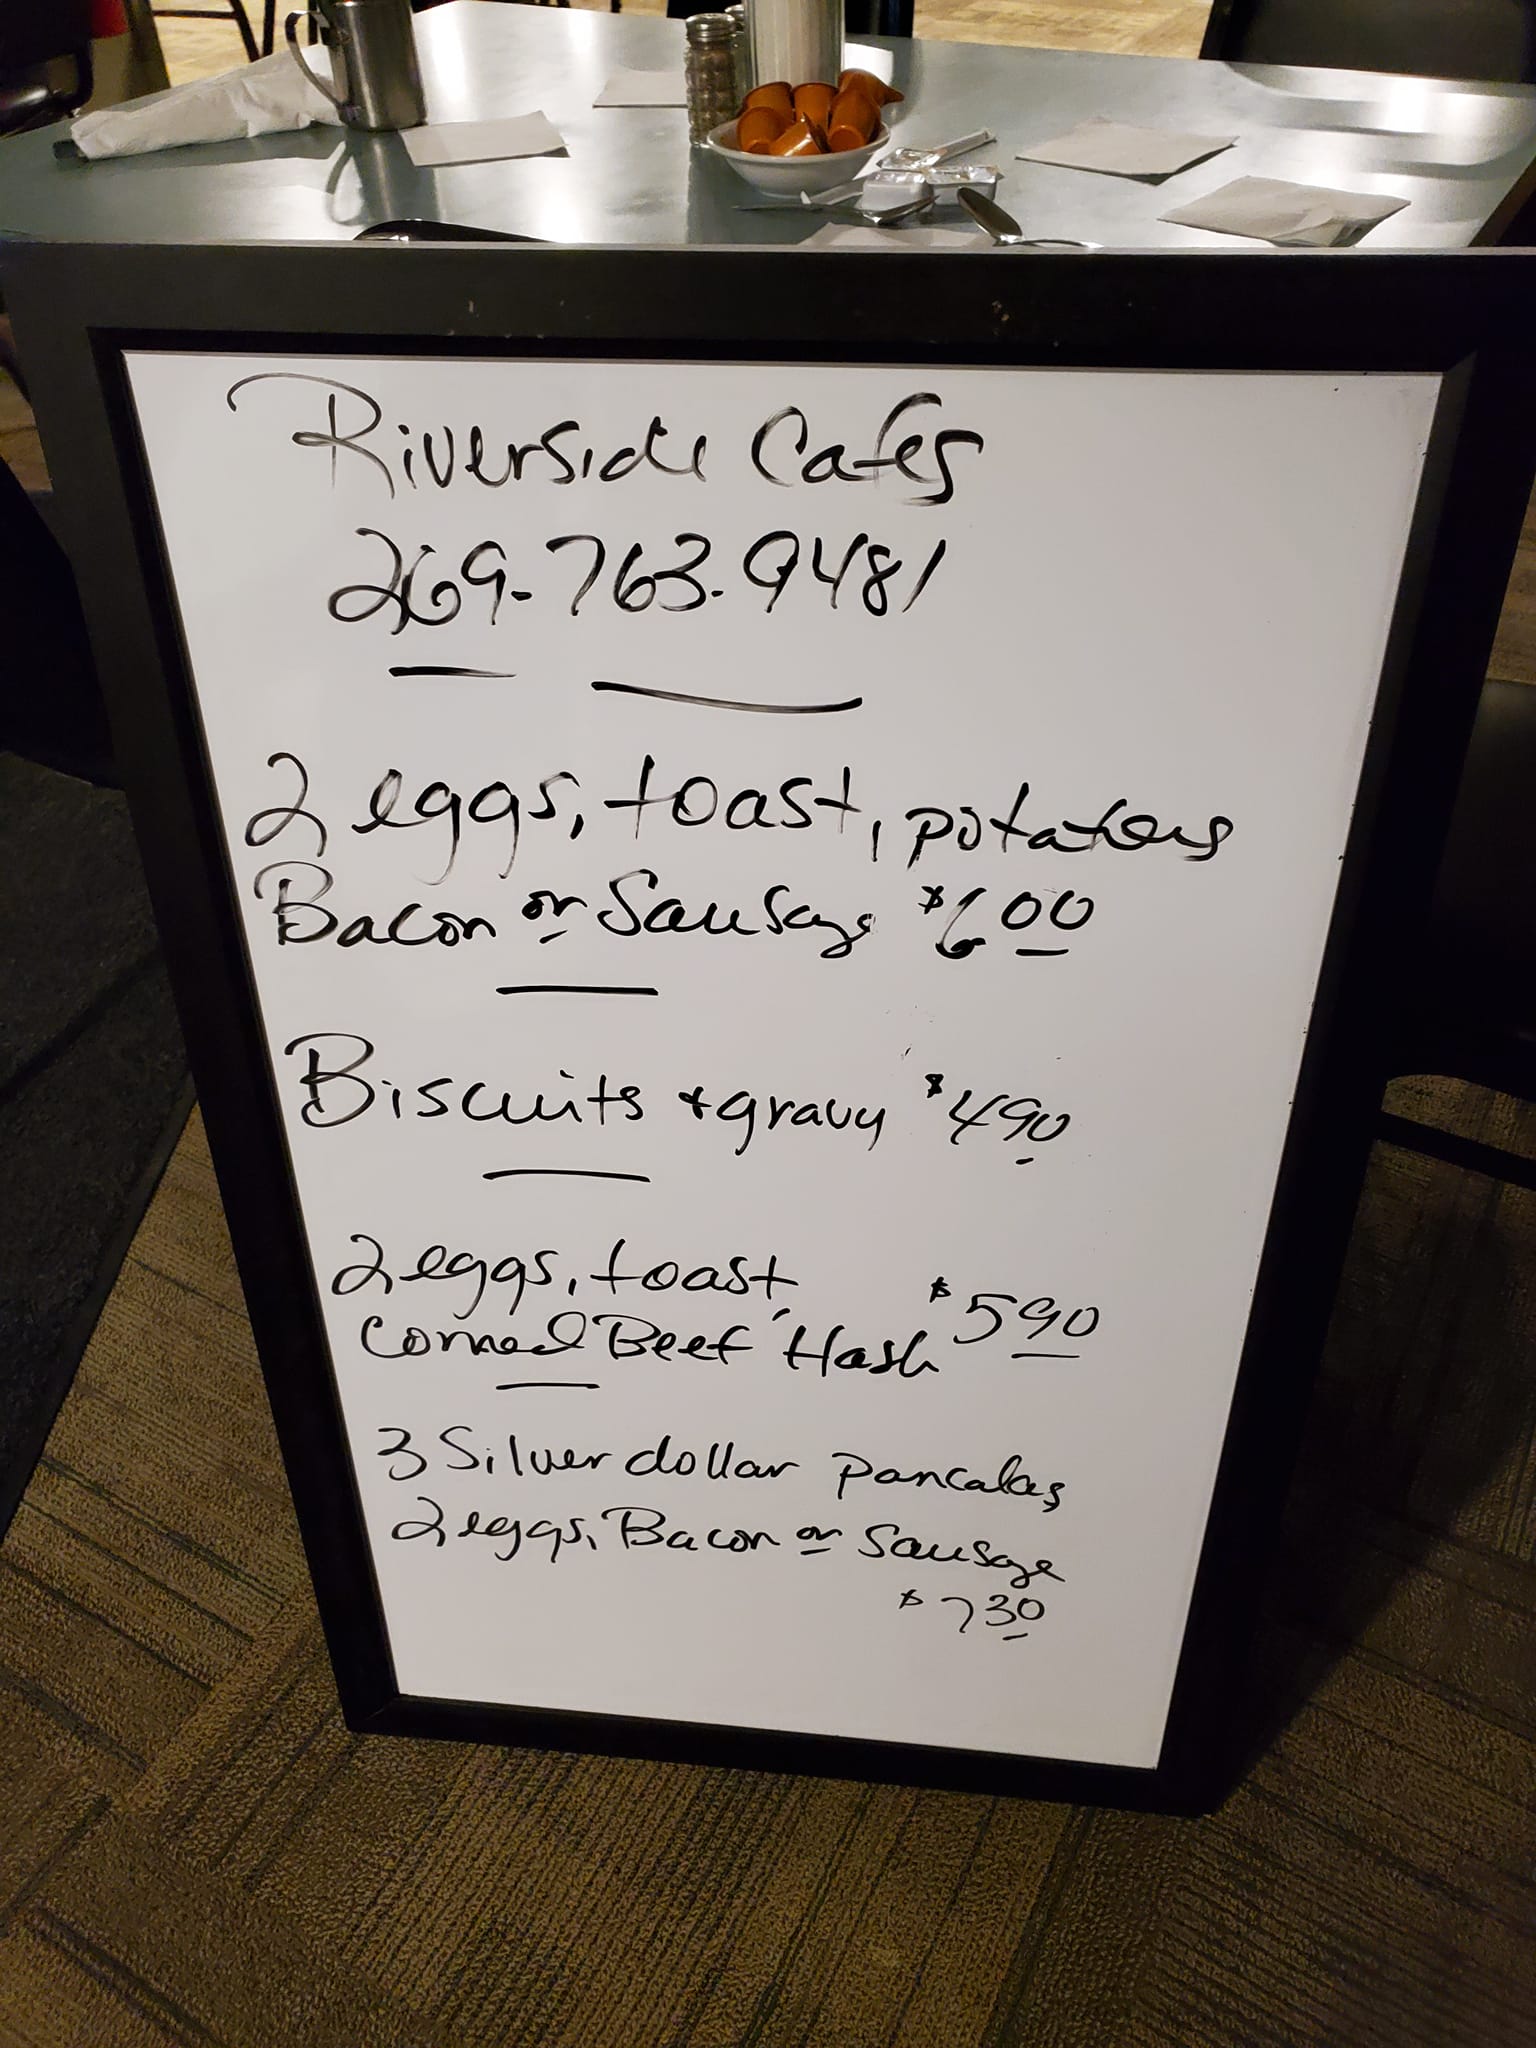 Riverside Cafes
269-763-9481
2 eggs, toast, potatoes
Bacon or Sausage $6.00
Biscuits + gravy $4.90
2 eggs, toast,
Corned Beef Hash $5.90
3 Silver dollar pancakes
2 eggs, Bacon or Sausage
$7.30